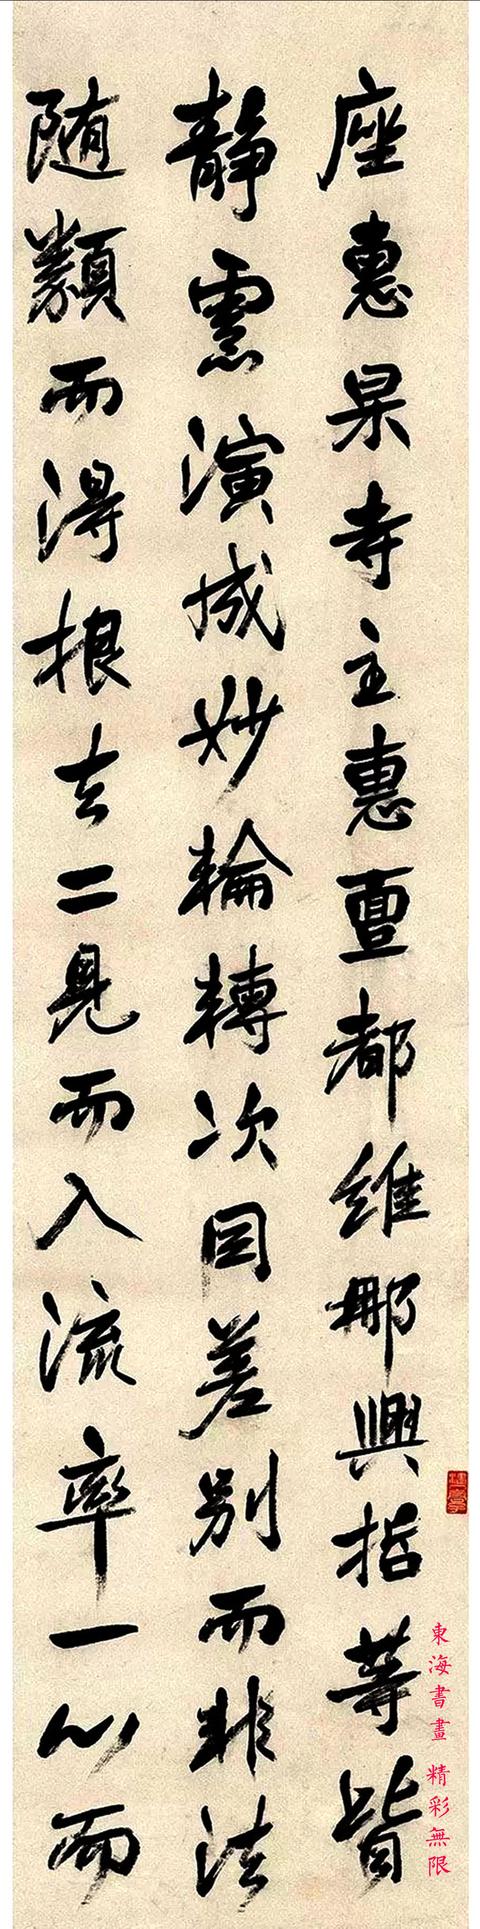 座惠杲寺主惠亶都維那興哲等皆
静慮演成妙輪轉次因差別而非法
随類而得根去二見而入流率一心而
東海書畫 精彩無限